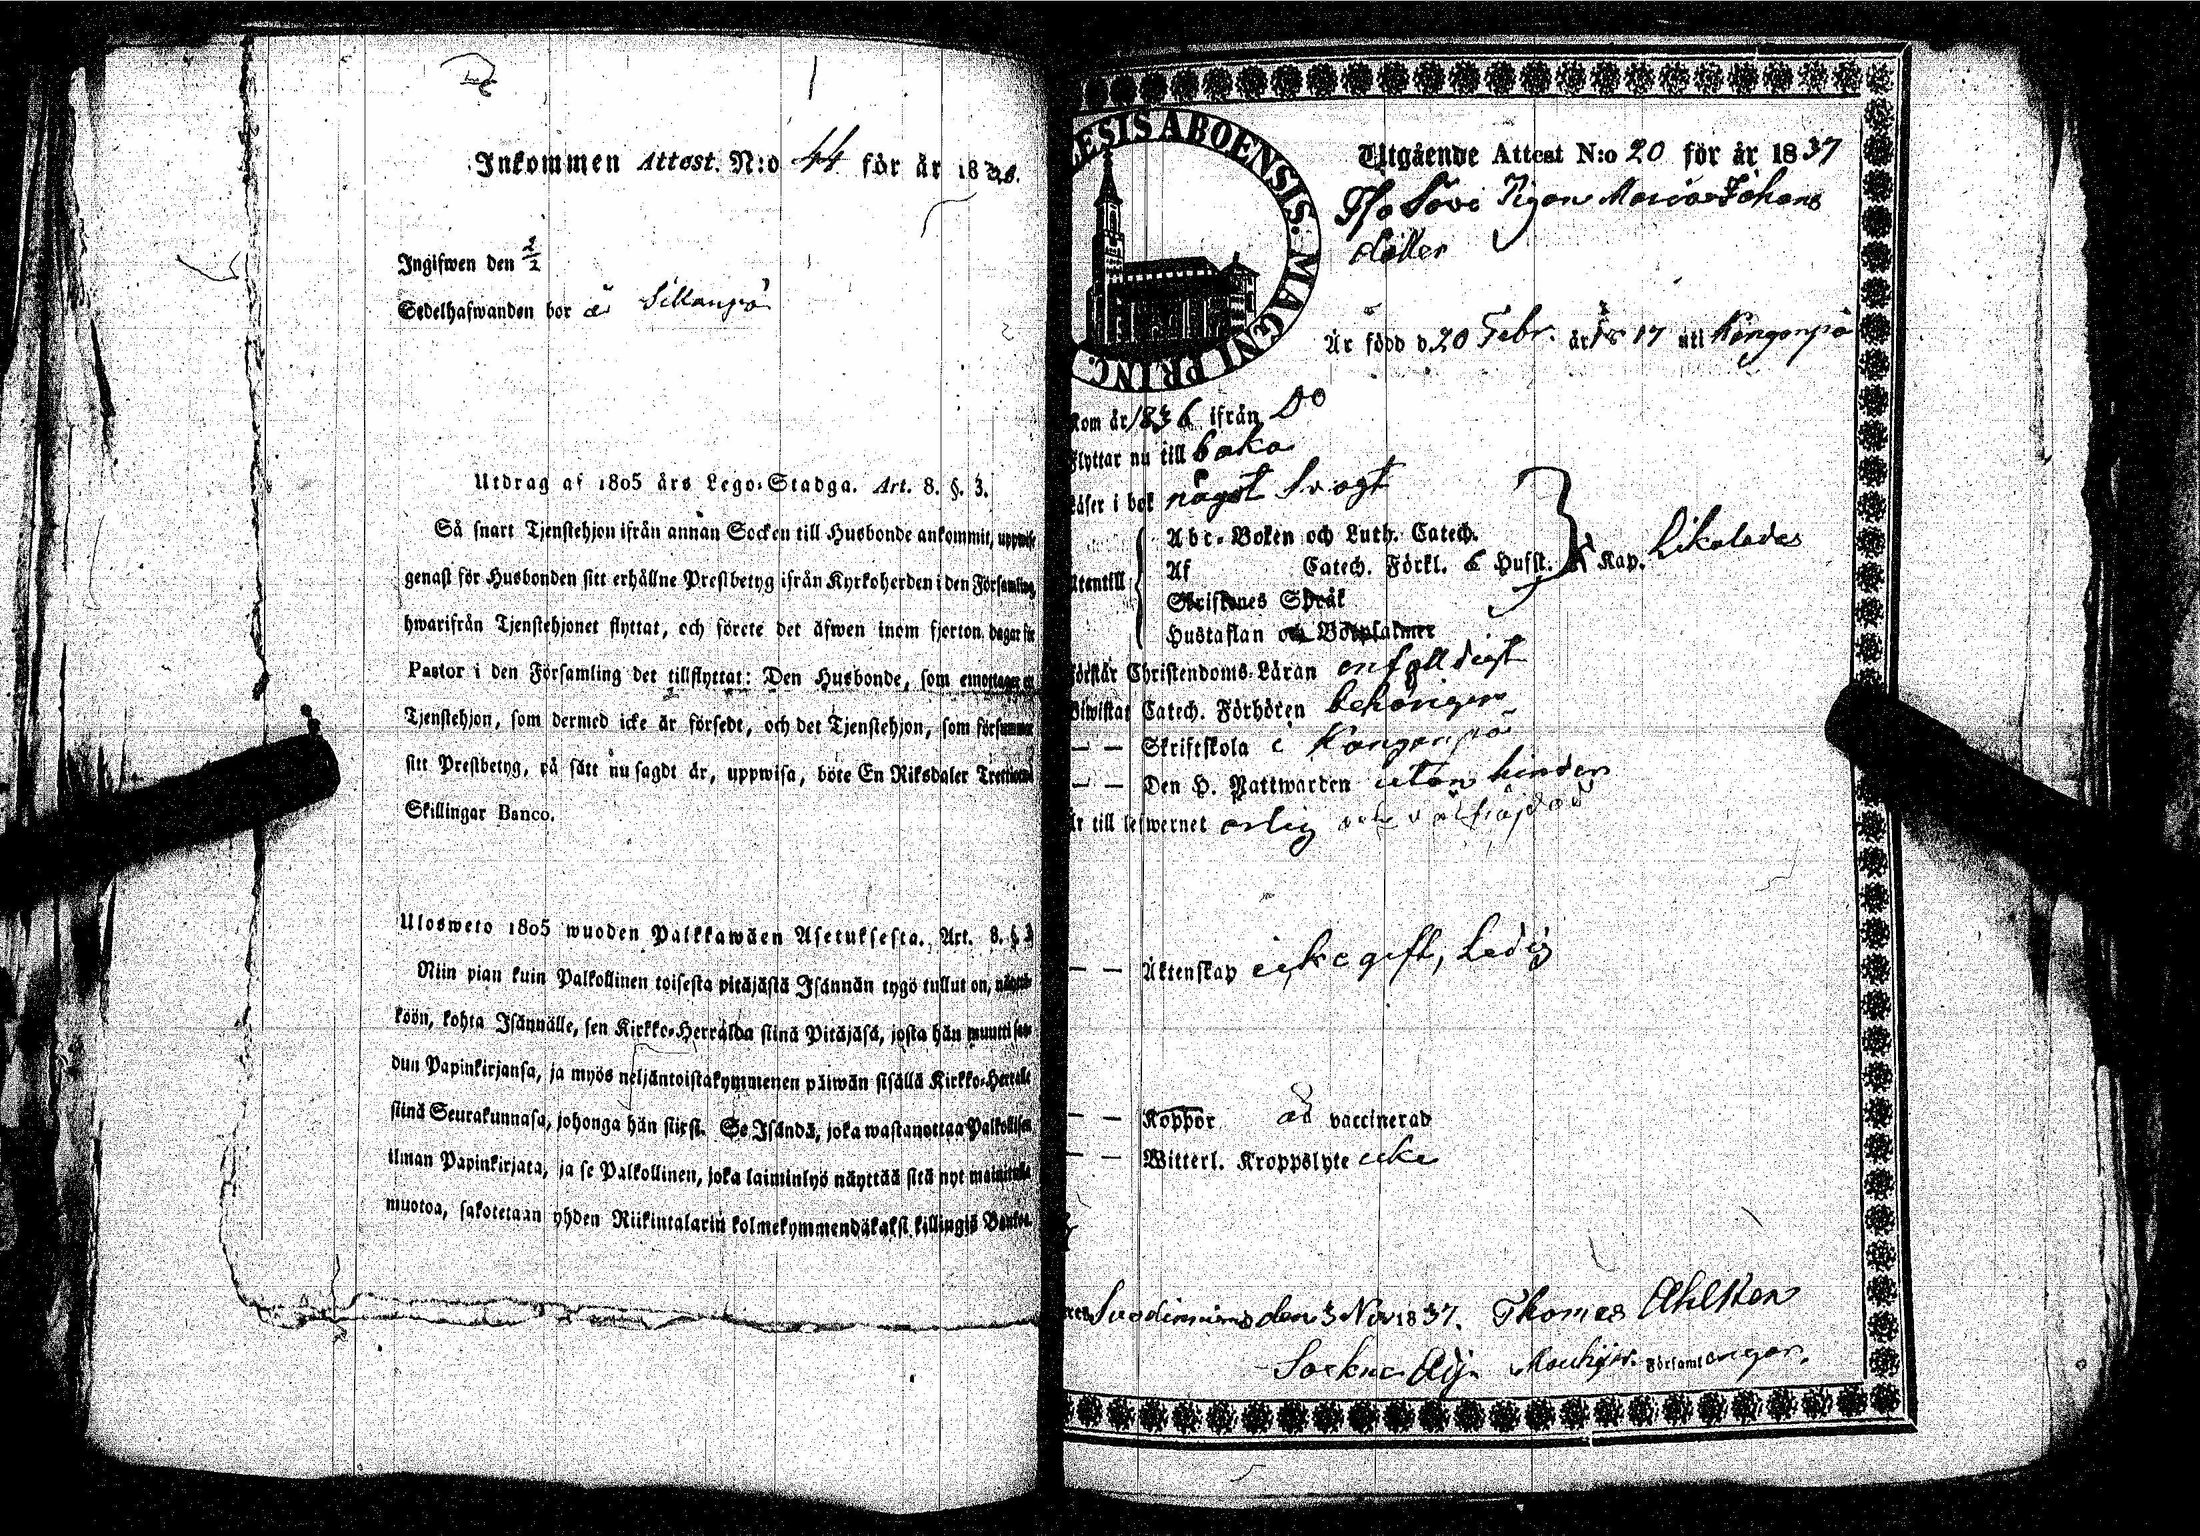 Inkommen Attest. N:o 44 för år 18
Ingifwen den 2/2
Sedelhafwanden bor å Sillanpä
Utdrag af 1805 års Lego-Stadga. Art. 8. §. 3.
Så snart Tjenstehjon ifrån annan Socken till Husbonde ankommit, uppwise
genast för Husbonden sitt erhållne Prestbetyg ifrån Kyrkoherden i den Församling
hwarifrån Tjenstehjonet flyttat, och förete det äfwen inom fjorton dagar för
Pastor i den Församling det tillflyttat: Den Husbonde, som emottager et
Tjenstehjon, som dermed icke är försedt, och det Tjenstehjon, som försummar
sitt Prestbetyg, på sätt nu sagdt är, uppwisa, böte En Riksdaler
Skillingar Banco.
Ulosweto 1805 wuoden Palkkawäen Asetuksesta. Art. 8. §. 3
Niin pian kuin Palkollinen toisesta pitäjästä Isännän tygö tullut on, näyttä-
köön, kohta Isännälle, sen Kirkko-Herralda siinä Pitäjäsä, josta hän muutti saa-
dun Papinkirjansa, ja myös neljäntoistakymmenen päiwän sisällä Kirkko-Herralle
siinä Seurakunnasa, johonga hän siirsi. Se Isändä, joka wastanottaa Palkollisen
ilman Papinkirjata, ja se Palkollinen, joka laiminlyö näyttää sitä nyt mainitulla
muotoa, sakotetaan yhden Riikintalarin kolmekymmendäkaksi killingiä Bankos.
ESIS ABOENSIS. MAGNI PRINC.
Utgående Attest N:o 20 för år 1837
Pigan Maria Johans
dotter
Är född d 20 Febr. år 1817 uti Kangonpä
kom år 1836 ifrån Do
flyttar nu till baka
läser i bok något svagt
Abc-Boken och Luth. Catech.
Af Catech. Förkl. 6 Hufst. Kap. likaledes
utantill
Skriftenes Språk
Hustaflan och Botpsalmer
förstår Christendoms-Läran enfalldigt
Biwistat Catech. Förhören behörigen
— — Skriftskola i Kangonpä
— — Den H. Nattwarden utan hinder
är till lefwernet ärlig och välfräjdad
— — Äktenskap icke gift, Ledig
— — Koppor är vaccinerad
— — Witterl. Kroppslyte icke
Suodinniemi den 3 Nov 1837. Thomas Ahlsten
Sockne Adj. Mouhijär. Församlingar.